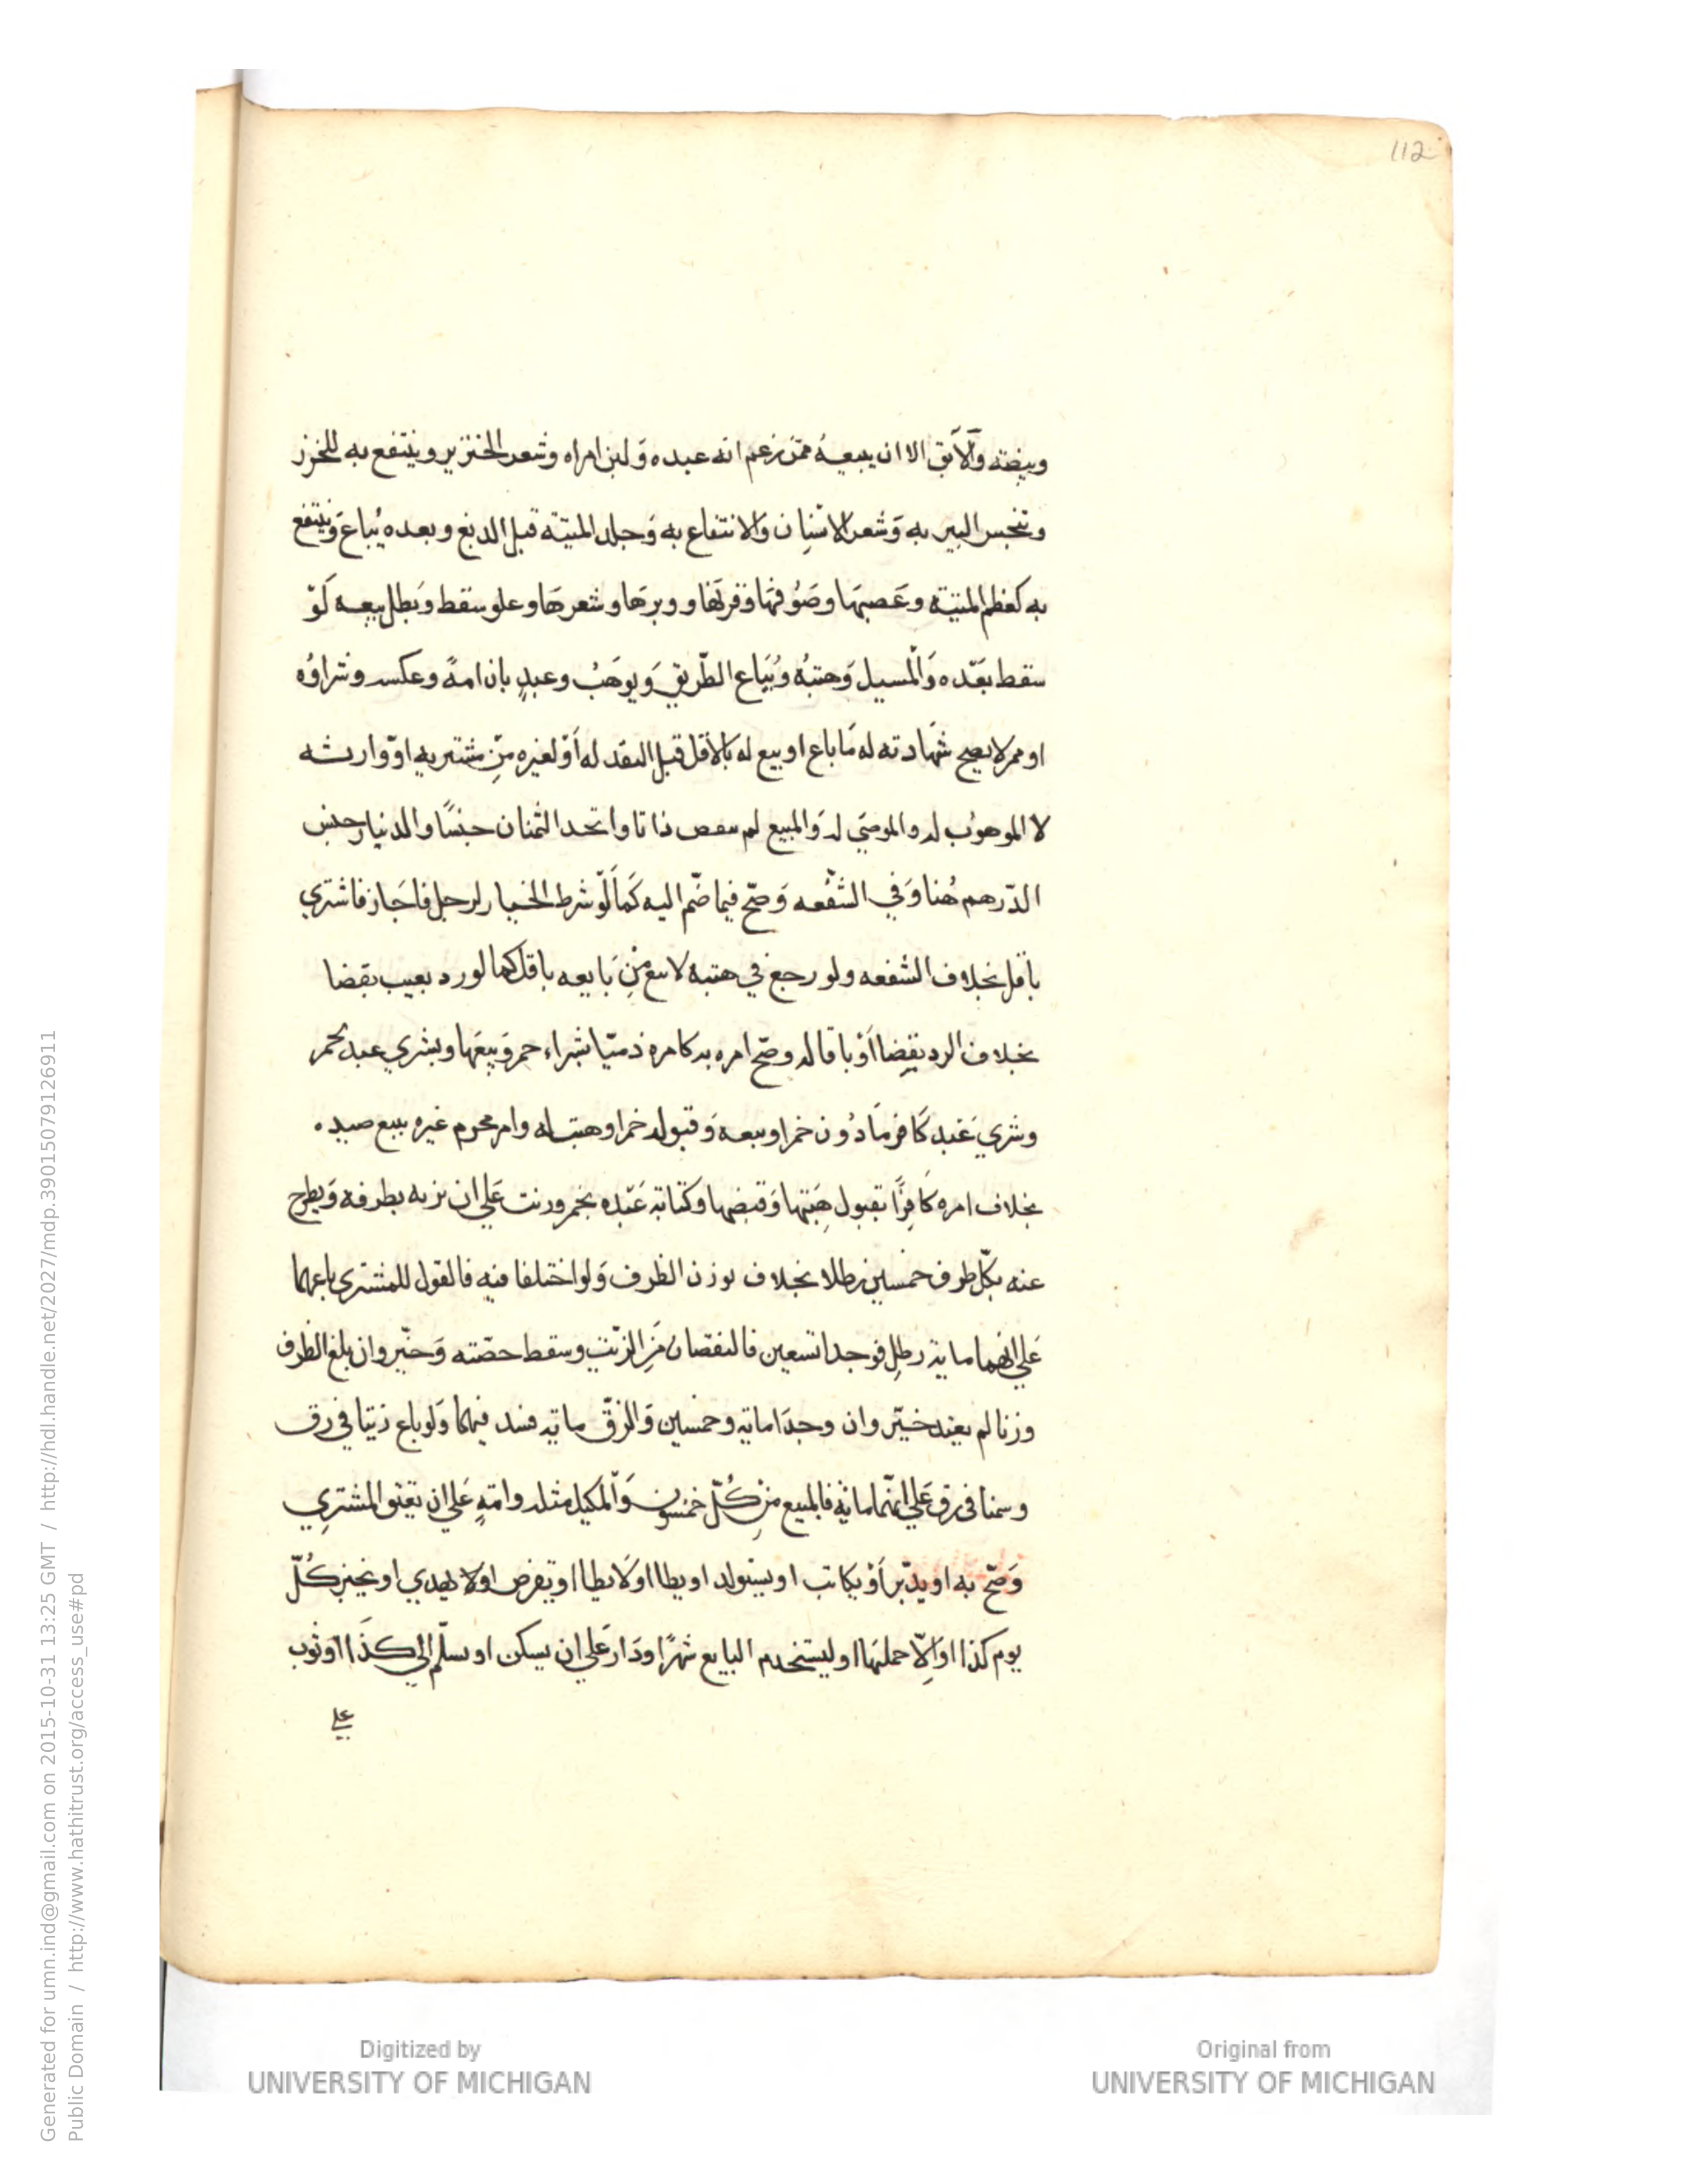 112
وبيضته والآبق الا ان يبيعه ممن زعم انه عبده ولبن امراه وشعر الخنزير وينتفع به للخرز
وتنجس البير به وشعر الانسان والانتفاع به وجلد الميتة قبل الدبغ وبعده يُباع وينتفع
به كعظم الميتة وعَصبها وصوفها وقرنها ووبرها وشعرها وعلو سقط وبطل بيعه لَوّ
سقط بعّده والمسيل وهبتُه ويُباع الطّريق ويوهَبُ وعبدٍ بان امةً وعكسه وشراوُه
او ممن لا يصح شهادته له مَا باع او بيع له بالأقل قبل النقد له أوْ لغيره مِن مشتريه او وارثه
لا الموهوب له والموصَي له والمبيع لم ينقص ذاتا واتحد الثمنان جنسًا والدنيار جنس
الدّرهم هُنا وَفي الشّفعه وَصحّ فيما ضّم اليه كَما لَوّ شرط الخيار لرجل فاجَاز فاشتري
باقل بخلاف الشفعه ولو رجع في هبته لا يبع مِن بَايعه باقل كما لو رد بعيب بقضا
بخلاف الرد بقضا أوْ باقاله وصحّ امره به كامره ذميّا بشراء خمر وبيعها وبشري عبد بخمر
وشري عَبد كَافر مَاذُون خمرا وبيعه وَقبوله خمرا وهبتها له وامر محرم غيره ببيع صيده
بخلاف امره كَافِرًا بقبول هِبَتها وَقبضها وكتابة عَبّده بخمر وزيت عَلي ان يزنه بظرفه وَيطرح
عنه بكلّ ظرف خمسين رطلا بخلاف بوزن الظرف وَلو اختلفا فيه فالقول للمشتري باعهما
عَلي انهما ماية رطلٍ فوجدا تسعين فالنقصان مَن الزّيت وسقط حصّته وَخيّر وان بلغ الظرف
وزنا لم يعهد خيّر وان وجدَا ماية وخمسين وَالزقّ ماية فسد فيهما وَلو باع زيتا في زق
وسمنا في زق عَلي انّهما ماية فالمبيع مِن كُلّ خمسون وَالمكيل مثله وامةٍ عَلي ان يعتق المشتري
وَصحّ به او يدبّر أوْ يكاتب او يستولد او يطا او لَا يطا او يقرض اوْلا يهدي او يخبز كُلّ
يوم كذا او اِلّا حملها او ليستخدم البايع شهرًا ودَار عَلي ان يسكن او يسلّم الي كذَا او ثوب
علي
Generated for umn.ind@gmail.com on 2015-10-31 13:25 GMT / http://hdl.handle.net/2027/mdp.39015079126911
Public Domain / http://www.hathitrust.org/access_use#pd
Digitized by
UNIVERSITY OF MICHIGAN
Original from
UNIVERSITY OF MICHIGAN